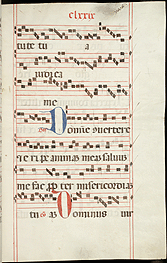 clxxix
tute tu a
iudica
me
Domine cōvertere
et eripe animaz meaz salvuz
me fac pp ter misericordiaz
tuaz Dominus